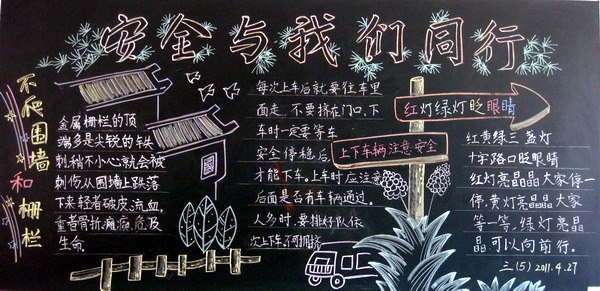 安全与我们同行
不爬围墙和栅栏
金属栅栏的顶
端多是尖锐的铁
刺稍不小心就会被
刺伤从围墙上跌落
下来轻者破皮、流血、
重者骨折瘫痪、危及
生命.
每次上车后就要往车里
面走,不要挤在门口、下
车时一定要等车
安全停稳后,
才能下车.上车时应注意
后面是否有车辆通过。
人多时,要排好队依
次上下车不可拥挤
上下车辆注意安全
红灯绿灯眨眼睛
红黄绿三盏灯
十字路口眨眼睛
红灯亮晶晶大家停一
停,黄灯亮晶晶大家
等一等,绿灯亮晶
晶可以向前行。
三(5) 2011.4.27